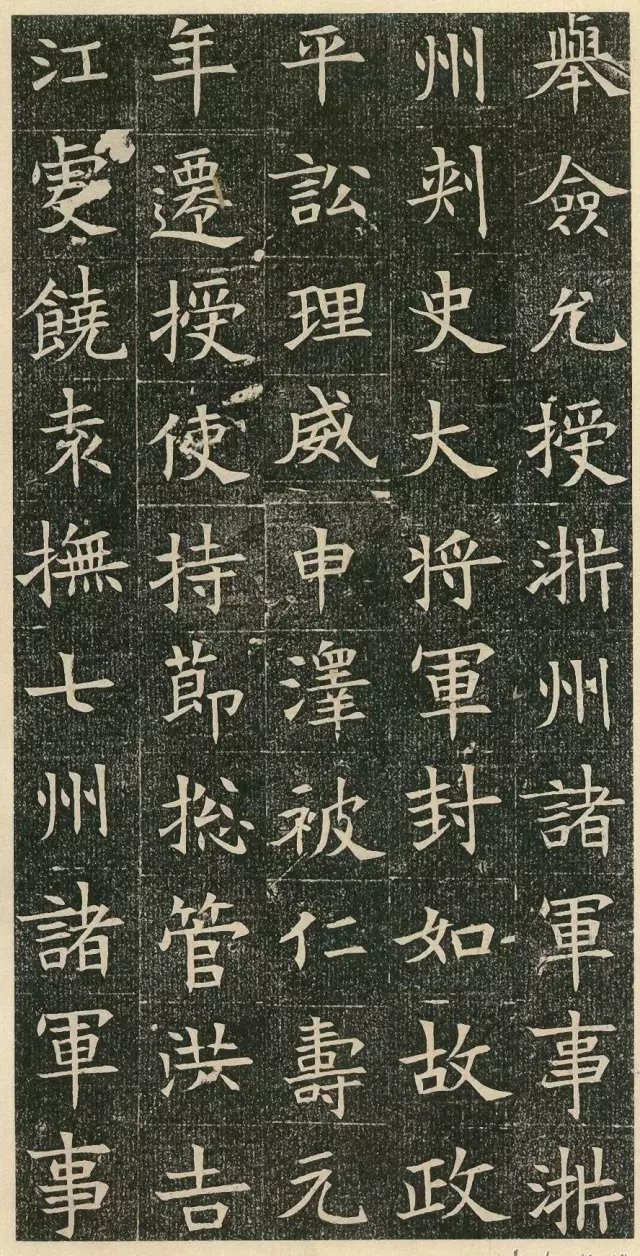 舉僉允授淅州諸軍事淅
州刾史大将軍封如故政
平訟理威申澤被仁壽元
年遷授使持節捴管洪吉
江虔饒袁撫七州諸軍事